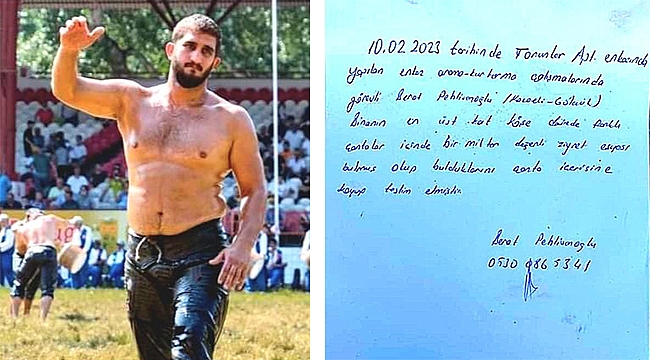 10.02.2023 tarihinde Torunlar Apt. enkazında
yapılan enkaz arama-kurtarma çalışmalarında
görevli Berat Pehlivanoğlu (Kocaeli-Gölcük)
Binanın en üst kat köşe dairede farklı
çantalar içinde bir miktar değerli ziynet eşyası
bulmuş olup bulduklarını çanta içerisine
koyup teslim etmiştir.
Berat Pehlivanoğlu
0530 086 5341